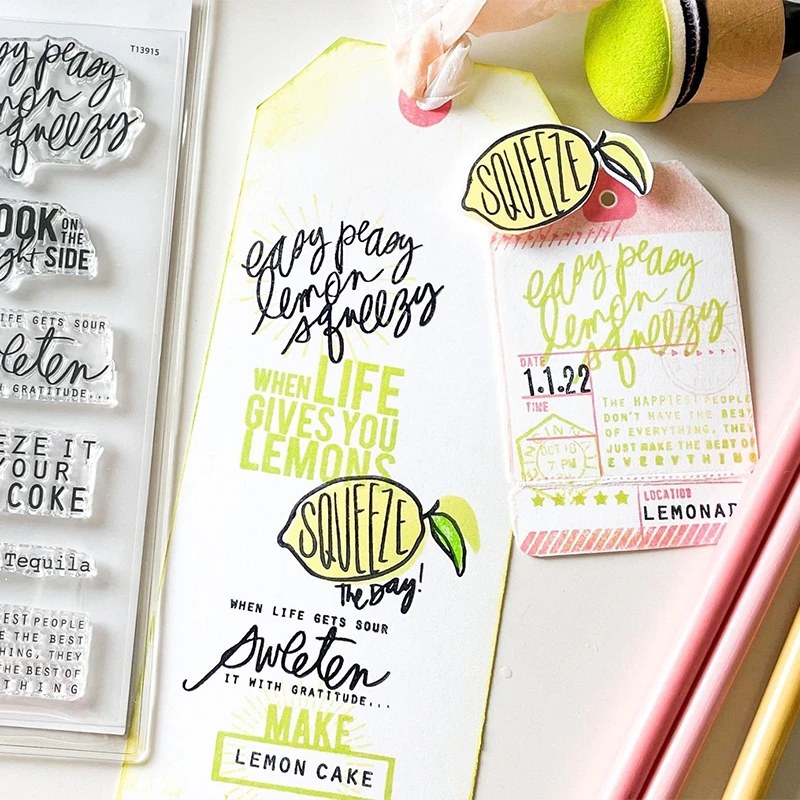 T13915
peasy
squeezy
ON
THE
SIDE
GETS SOUR
GRATITUDE...
IT
YOUR
COKE
Tequila
PEOPLE
THE BEST
THEY
THE BEST OF
easy peasy
lemon
squeezy
WHEN LIFE
GIVES YOU
LEMONS
SQUEEZE
The Day!
WHEN LIFE GETS SOUR
sweeten
IT WITH GRATITUDE...
MAKE
LEMON CAKE
SQUEEZE
easy peasy
lemon
squeezy
DATE
1.1.22
TIME
THE HAPPIEST PEOPLE
DON'T HAVE THE BEST
OF EVERYTHING, THEY
JUST MAKE THE BEST OF
EVERYTHING
7 PM
LOCATION